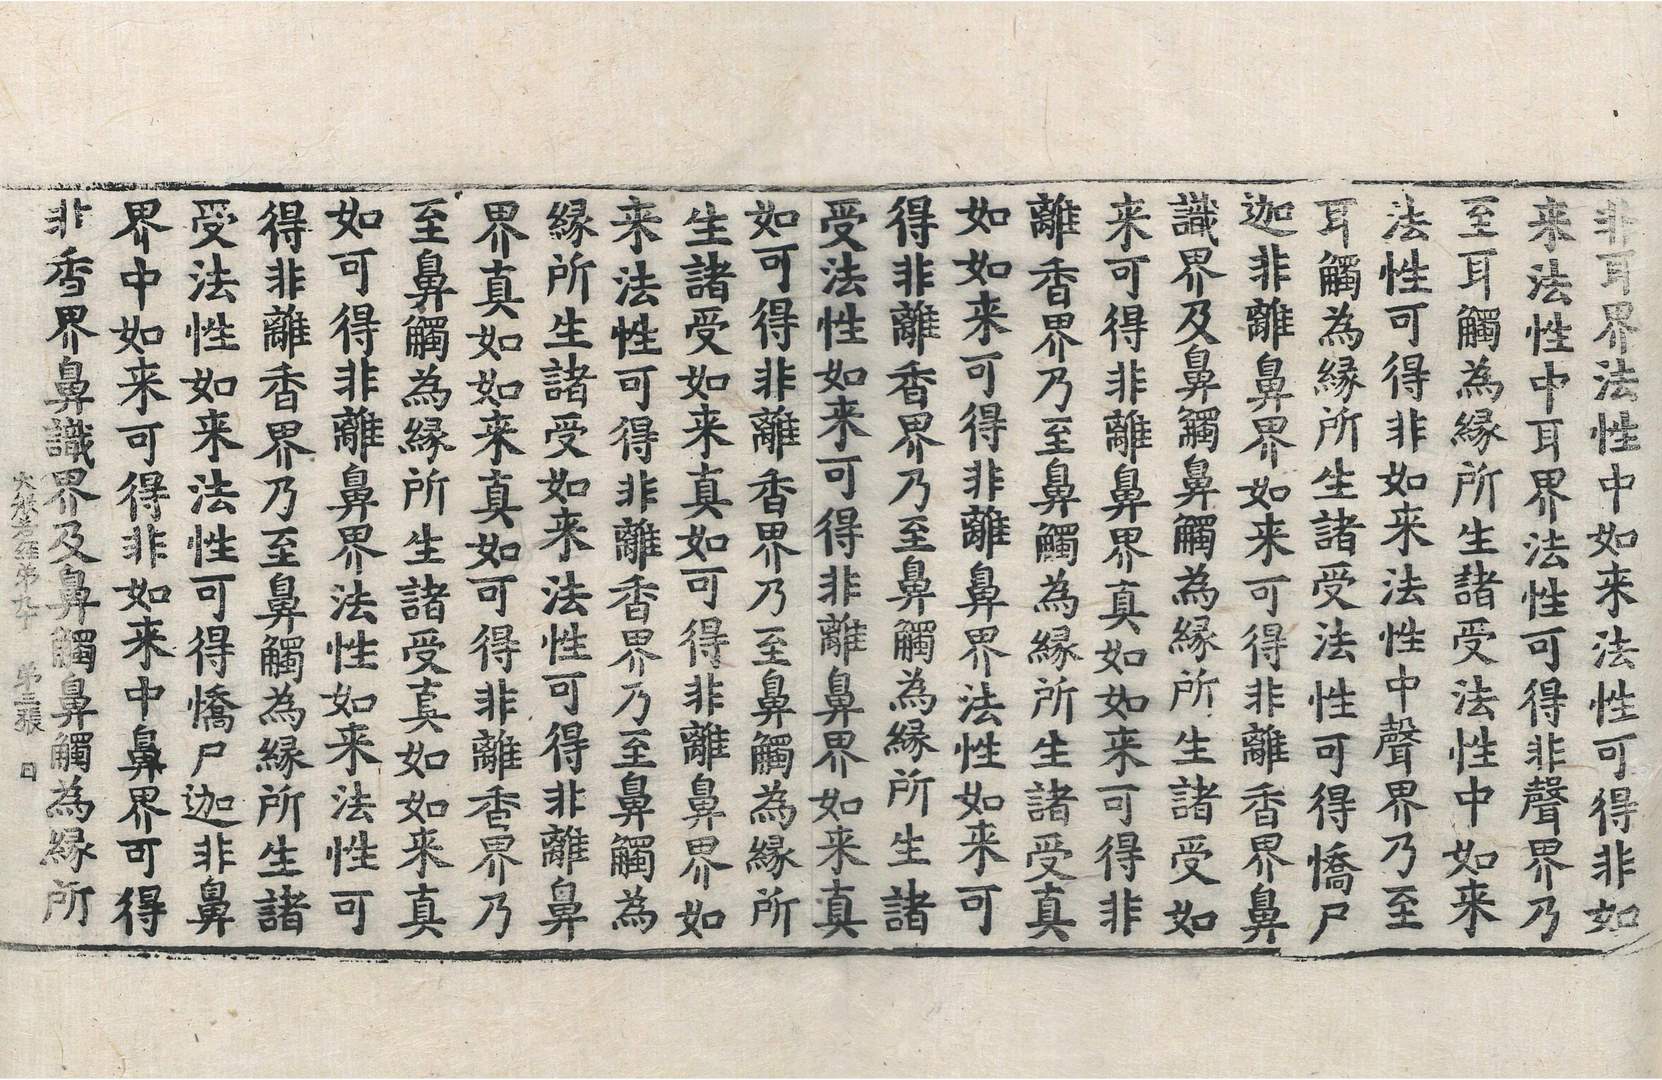 非耳界法性中如来法性可得非如
来法性中耳界法性可得非聲界乃
至耳觸為縁所生諸受法性中如来
法性可得非如来法性中聲界乃至
耳觸為縁所生諸受法性可得憍尸
迦非離鼻界如来可得非離香界鼻
識界及鼻觸鼻觸為縁所生諸受如
来可得非離鼻界真如如来可得非
離香界乃至鼻觸為縁所生諸受真
如如来可得非離鼻界法性如来可
得非離香界乃至鼻觸為縁所生諸
受法性如来可得非離鼻界如来真
如可得非離香界乃至鼻觸為縁所
生諸受如来真如可得非離鼻界如
来法性可得非離香界乃至鼻觸為
縁所生諸受如来法性可得非離鼻
界真如如来真如可得非離香界乃
至鼻觸為縁所生諸受真如如来真
如可得非離鼻界法性如来法性可
得非離香界乃至鼻觸為縁所生諸
受法性如来法性可得憍尸迦非鼻
界中如来可得非如来中鼻界可得
非香界鼻識界及鼻觸鼻觸為縁所
大般若經第九十 第三張 日